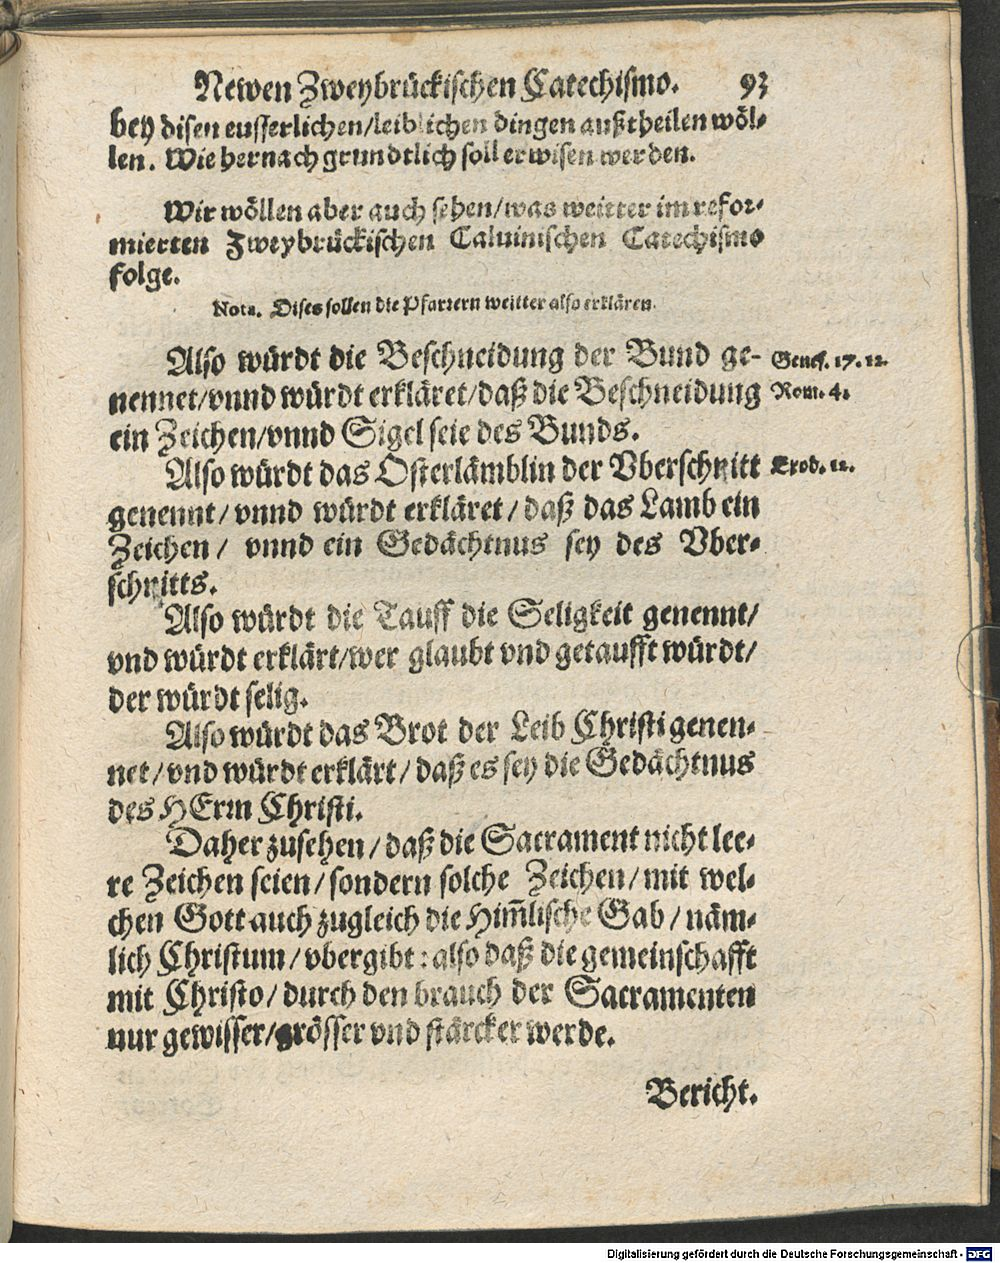 Newen Zweybrückischen Catechismo. 93
bey disen eusserlichen/leiblichen dingen außtheilen wöl-
len. Wie hernach grundtlich soll erwisen werden.
Wir wöllen aber auch sehen/was weitter im refor-
mierten Zweybrückischen Caluinischen Catechismo
folge.
Nota. Dises sollen die Pfarrern weitter also erklären.
Also würdt die Beschneidung der Bund ge- Genes. 17. 12.
nennet/vnnd würdt erkläret/daß die Beschneidung Rom. 4.
ein Zeichen/vnnd Sigel seie des Bunds.
Also würdt das Osterlämblin der Vberschritt Exod. 12.
genennt/vnnd würdt erkläret/daß das Lamb ein
Zeichen/ vnnd ein Gedächtnus sey des Vber-
schritts.
Also würdt die Tauff die Seligkeit genennt/
vnd würdt erklärt/wer glaubt vnd getaufft würdt/
der würdt selig.
Also würdt das Brot der Leib Christi genen-
net/vnd würdt erklärt/daß es sey die Gedächtnus
des HErrn Christi.
Daher zusehen/daß die Sacrament nicht lee-
re Zeichen seien/sondern solche Zeichen/mit wel-
chen Gott auch zugleich die Him̃lische Gab/näm-
lich Christum/vbergibt: also daß die gemeinschafft
mit Christo/durch den brauch der Sacramenten
nur gewisser/grösser vnd stärcker werde.
Bericht.
Digitalisierung gefördert durch die Deutsche Forschungsgemeinschaft - DFG